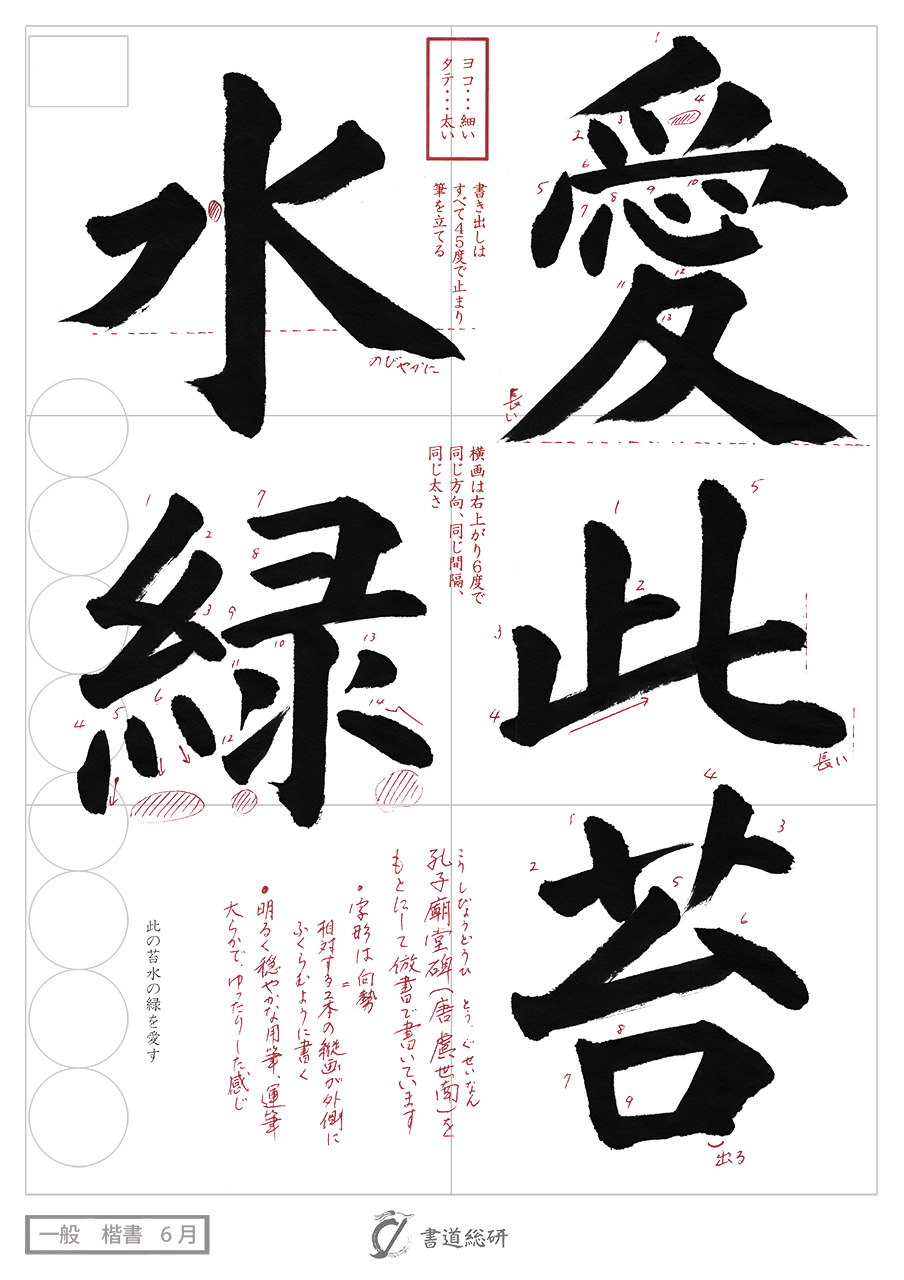 愛此苔
水緑
ヨコ・・・細い
タテ・・・太い
書き出しは
すべて45度で止まり
筆を立てる
のびやかに
長い
横画は右上がり6度で
同じ方向、同じ間隔、
同じ太さ
長い
出る
こうしびょうどうひ とう ぐせいなん
孔子廟堂碑(唐 虞世南)を
もとにして倣書で書いています
・字形は向勢
=
相対する2本の縦画が外側に
ふくらむように書く
・明るく穏やかな用筆、運筆
大らかで、ゆったりした感じ
此の苔水の緑を愛す
1
2
3
4
5
6
7
8
9
10
11
12
13
1
2
3
4
5
1
2
3
4
5
6
7
8
9
1
2
3
4
5
6
7
8
9
10
11
12
13
14
一般 楷書 6月
書道総研